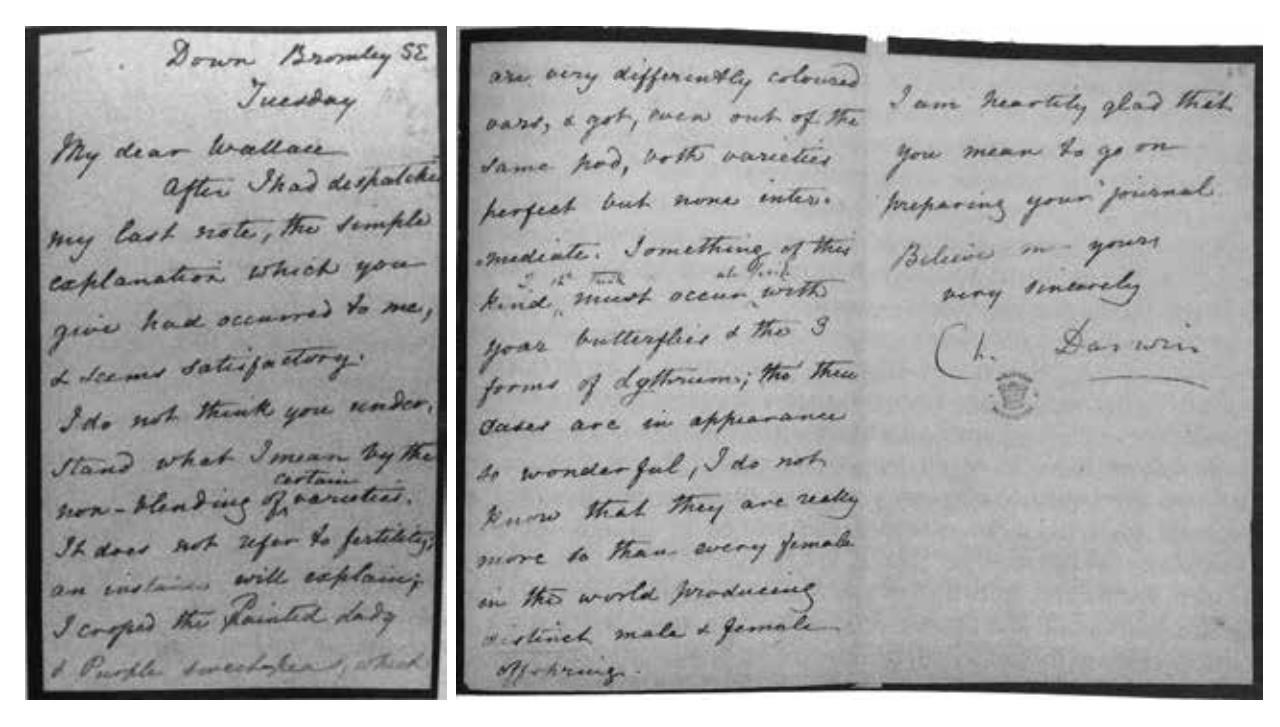 Down Bromley SE
Tuesday
My dear Wallace
After I had despatche
my last note, the simple
explanation which you
give had occurred to me,
& seems satisfactory.
I do not think you under-
stand what I mean by the
certain
non-blending of varieties.
It does not refer to fertility;
an instance will explain;
I crossed the Painted Lady
& Purple sweetpeas, which
are very differently coloured
vars, & got, even out of the
same pod, both varieties
perfect but none inter-
mediate. Something of this
I sh. think at first
kind, must occur, with
your butterflies & the 3
forms of Lythrum; tho these
cases are in appearance
so wonderful, I do not
know that they are really
more so than every female
in the world producing
distinct male & female
offspring.
I am heartily glad that
you mean to go on
preparing your journal
Believe me yours
very sincerely
Ch. Darwin